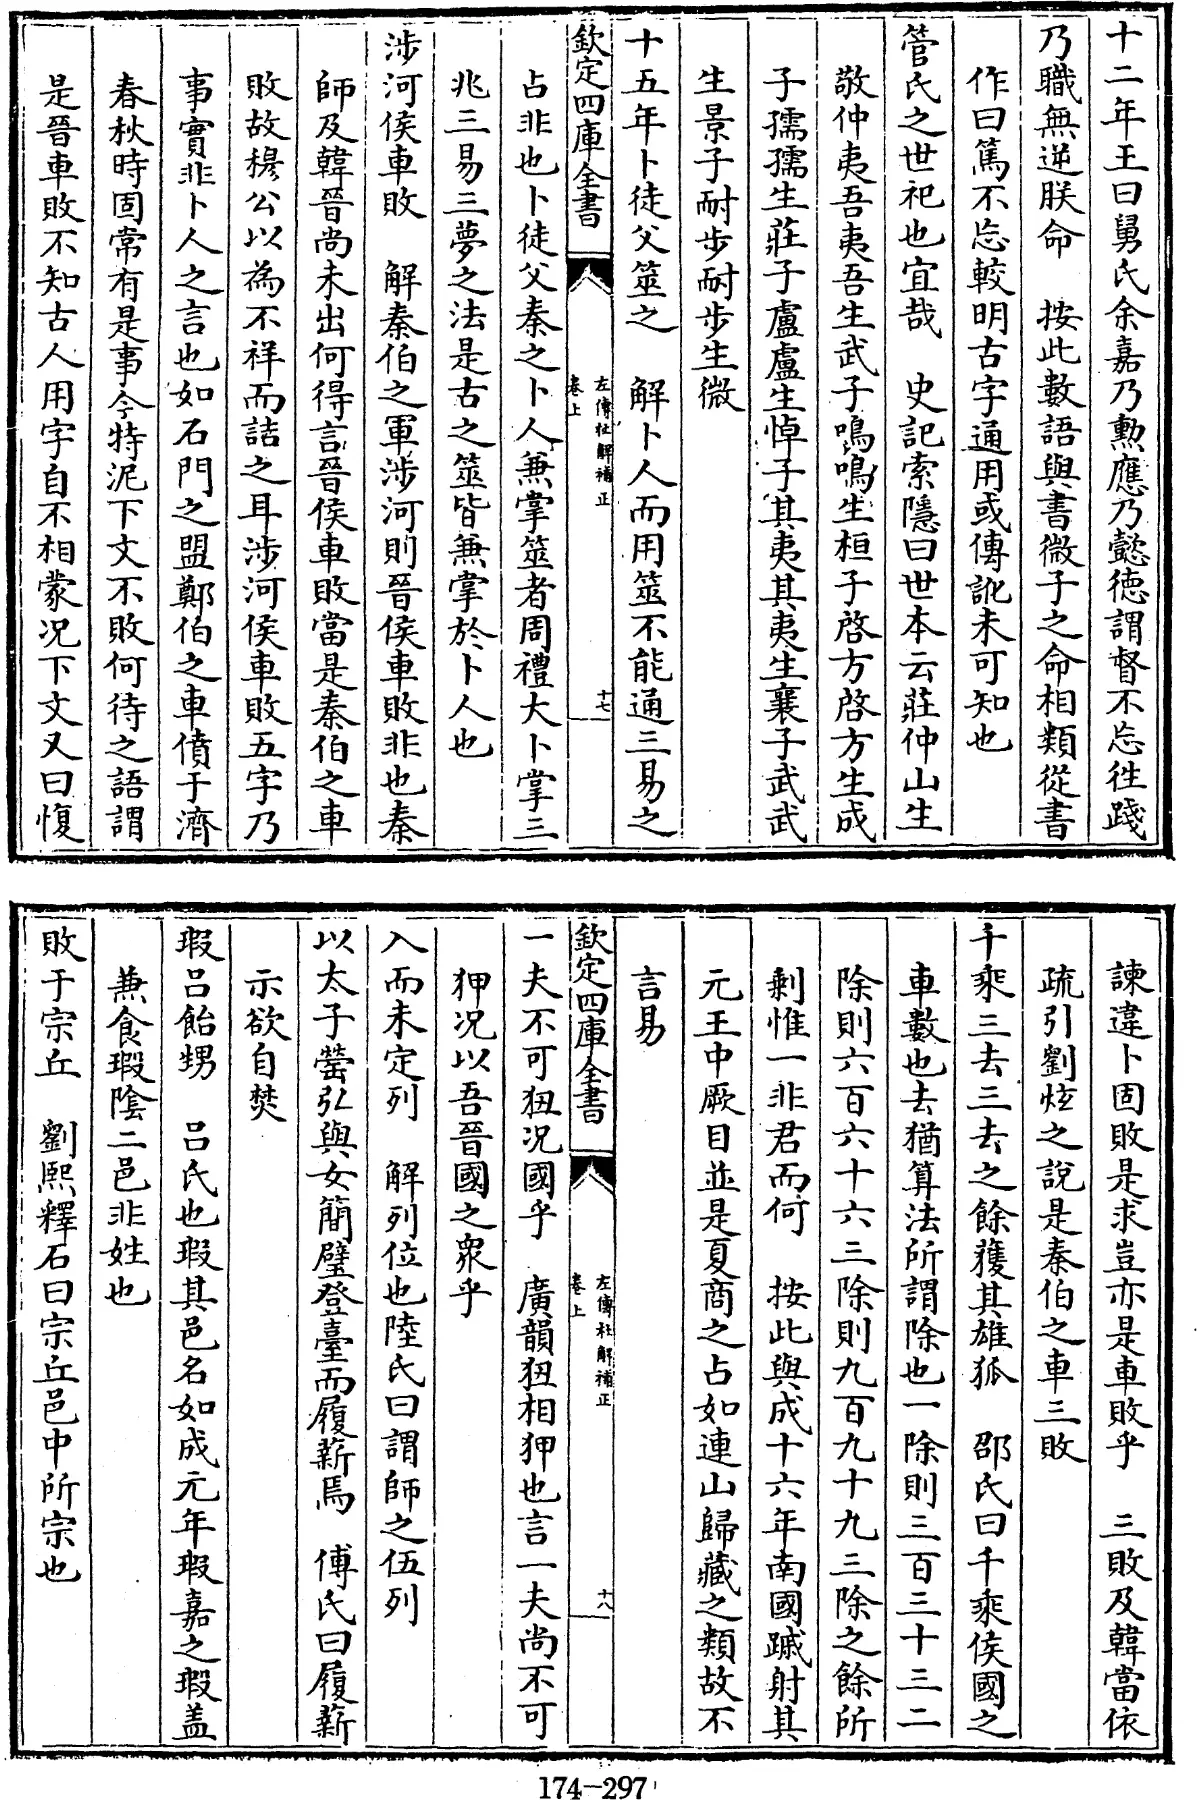 十二年王曰舅氏余嘉乃勲應乃懿徳謂督不忘徃踐
乃職無逆朕命　按此數語與書微子之命相類從書
作曰篤不忘較明古字通用或傳訛未可知也
管氏之世祀也宜哉　史記索隱曰世本云莊仲山生
敬仲夷吾夷吾生武子鳴鳴生桓子啓方啓方生成
子孺孺生莊子盧盧生悼子其夷其夷生襄子武武
生景子耐歩耐歩生微
十五年卜徒父筮之　解卜人而用筮不能通三易之
欽定四庫全書
左傳杜解補正
卷上
十七
占非也卜徒父秦之卜人兼掌筮者周禮大卜掌三
兆三易三夢之法是古之筮皆兼掌於卜人也
涉河侯車敗　解秦伯之軍涉河則晉侯車敗非也秦
師及韓晉尚未出何得言晉侯車敗當是秦伯之車
敗故穆公以為不祥而詰之耳涉河侯車敗五字乃
事實非卜人之言也如石門之盟鄭伯之車僨于濟
春秋時固常有是事今特泥下文不敗何待之語謂
是晉車敗不知古人用字自不相蒙况下文又曰愎
諫違卜固敗是求豈亦是車敗乎　三敗及韓當依
疏引劉炫之說是秦伯之車三敗
千乘三去三去之餘獲其雄狐　邵氏曰千乘侯國之
車數也去猶算法所謂除也一除則三百三十三二
除則六百六十六三除則九百九十九三除之餘所
剩惟一非君而何　按此與成十六年南國䠞射其
元王中厥目並是夏商之占如連山歸藏之類故不
言易
欽定四庫全書
左傳杜解補正
卷上
十八
一夫不可狃况國乎　廣韻狃相狎也言一夫尚不可
狎况以吾晉國之衆乎
入而未定列　解列位也陸氏曰謂師之伍列
以太子罃弘與女簡璧登臺而履薪焉　傅氏曰履薪
示欲自焚
瑕吕飴甥　吕氏也瑕其邑名如成元年瑕嘉之瑕盖
兼食瑕陰二邑非姓也
敗于宗丘　劉熙釋石曰宗丘邑中所宗也
174-297